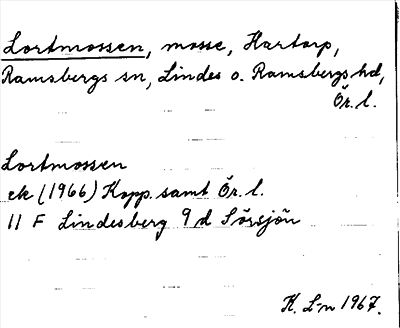 Lortmossen, mosse, Hartorp,
Ramsbergs sn, Lindes o. Ramsbergs hd,
Ör. l.
Lortmossen
ek (1966) Kopp. samt Ör. l.
11 F Lindesberg 9 d Sörsjön
K. L-n 1967.